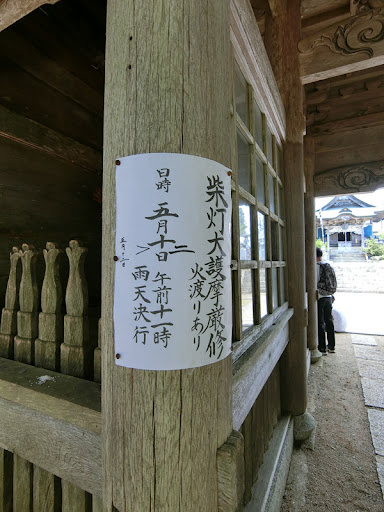 柴灯大護摩厳修
火渡りあり
日時
五月十二日
午前十一時
雨天決行